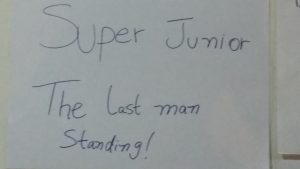 Super Junior
The last man
Standing!